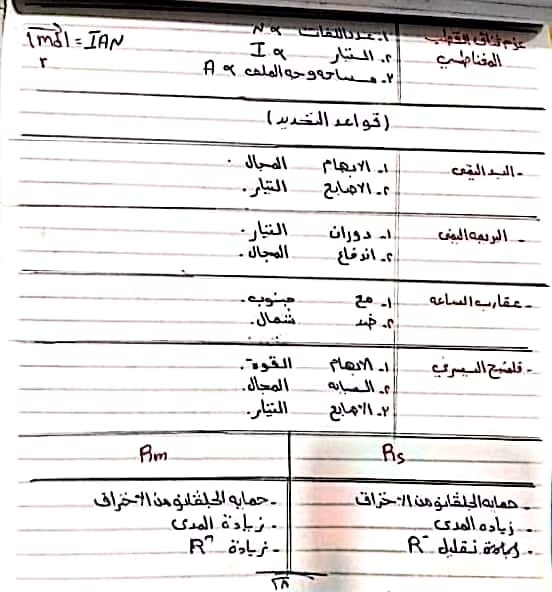 عزم ثنائي القطب ١. عدد اللفات N ∝ |md| = IAN
المغناطيسي ٢. التيار I ∝
٣. مساحه وجه الملف A ∝
(قواعد التحديد)
- اليد اليمنى ١. الابهام المجال.
٢. الاصابع التيار.
- البريمه اليمنى ١. دوران التيار.
٢. اندفاع المجال.
- عقارب الساعه ١. مع جنوب.
٢. ضد شمال.
- فلمنج اليسرى ١. الابهام القوة.
٢. السبابه المجال.
٣. الاصابع التيار.
Rs Rm
- حمايه الجلفانو من الاحتراق - حمايه الجلفانو من الاحتراق
- زياده المدى - زيادة المدى
نقليل R - زيادة R
٢٨